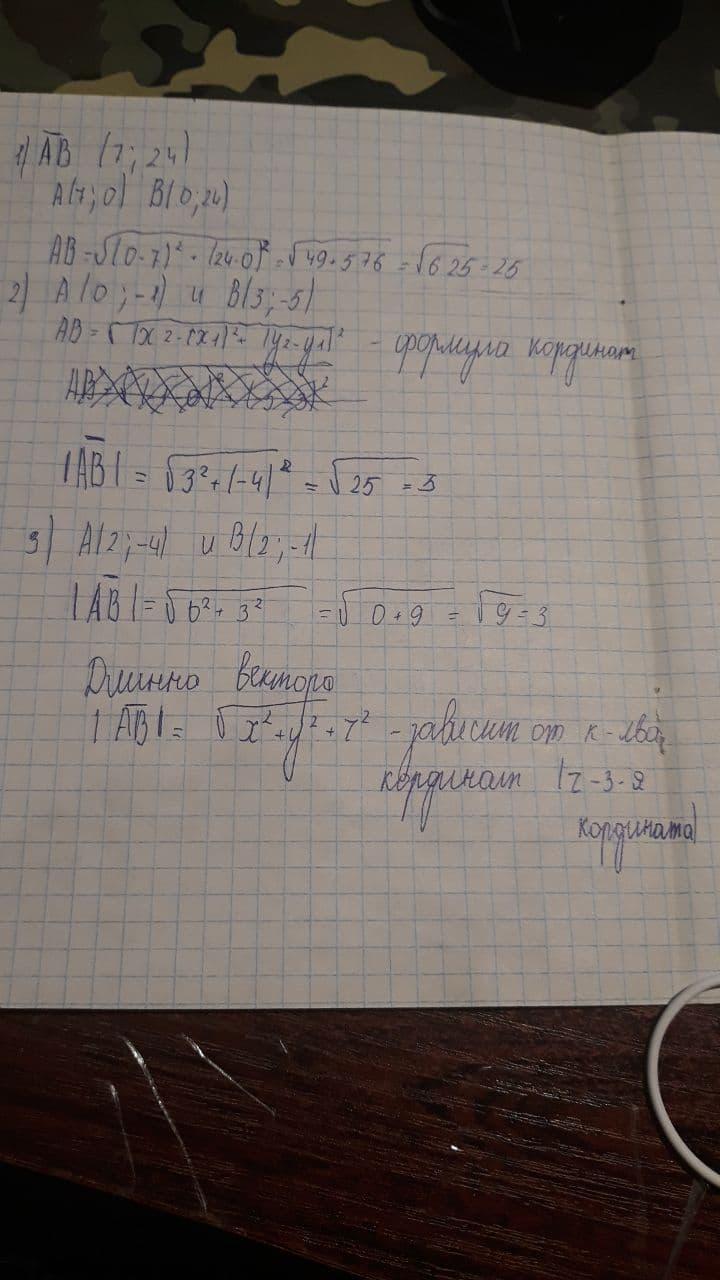 1) AB (7; 24)
A(7; 0) B(0; 24)
AB = √(0-7)² + (24-0)² = √49 + 576 = √625 = 25
2) A(0; -1) и B(3; -5)
AB = √(x2-(x1)² + (y2-y1)² - формула кординат
|AB| = √3² + (-4)² = √25 = 3
3) A(2; -4) и B(2; -1)
|AB| = √0² + 3² = √0+9 = √9 = 3
Длинна вектора
|AB| = √x² + y² + z² - зависит от к-ва
кординат (z - 3-я
кордината)